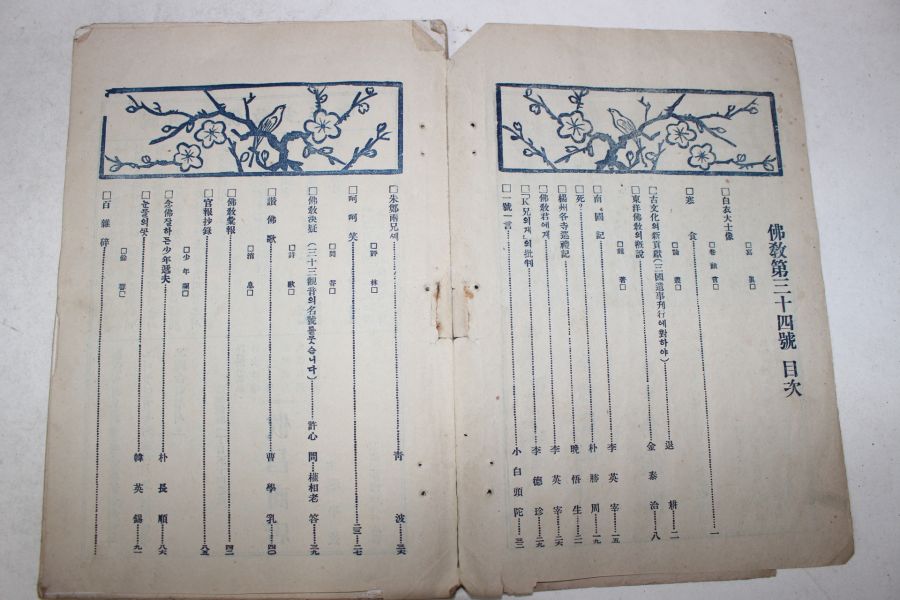 佛敎第三十四號 目次
□寫 眞□
□白衣大士像
□卷 頭 言□
□寒 食……一
□論 叢□
□古文化의新貢獻(三國遺事刊行에對하야)……退 耕……二
□東洋佛敎의槪說……金 泰 治……八
□雜 著□
□南 國 記……李 英 宰……一五
□死?……朴 勝 周……一九
□楊州各寺巡禮記……晩 悟 生……二一
□佛敎君에게……李 英 宰……二六
□「K兄의게」의批判……李 德 珍……二九
□一號一言……小 白 頭 陀……三二
□朱鄭兩兄께……靑 波……三六
□評 林□
□呵 呵 笑……二七
□問 答□
□佛敎決疑(三十三觀音의名號를뭇습니다)……許心 問…權相老 答……三九
□詩 歌□
□讚 佛 歌……曹 學 乳……四〇
□消 息□
□佛敎彙報……四二
□官報抄錄……八五
□少 年 欄□
□念佛잘하든少年遞夫……朴 長 順……八六
□눈물의꼿……韓 英 錫……九一
□餘 響□
□百 雜 碎